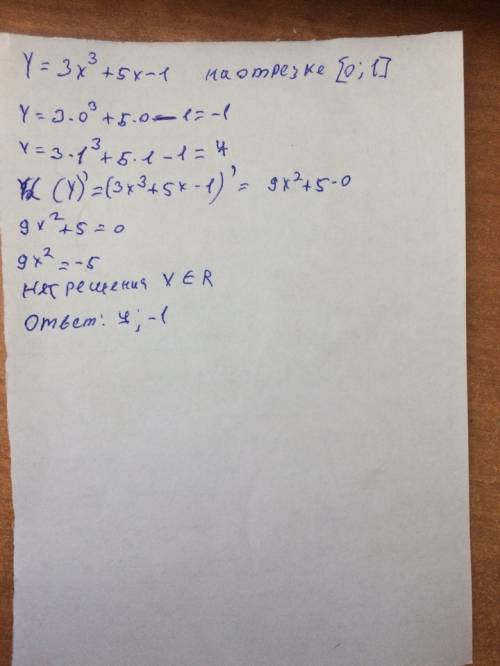 Y = 3x³ + 5x - 1 на отрезке [0; 1]
Y = 3·0³ + 5·0 - 1 = -1
Y = 3·1³ + 5·1 - 1 = 7
(Y)' = (3x³ + 5x - 1)' = 9x² + 5 - 0
9x² + 5 = 0
9x² = -5
Нет решения x ∈ R
Ответ: 7; -1